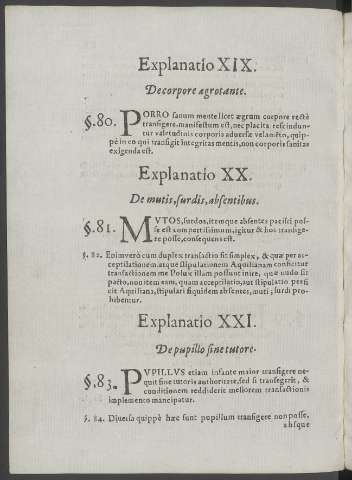 Explanatio XIX.
De corpore ægrotante.
§. 80. PORRO sanum mente licet ægrum corpore rectè
transigere, manifestum est, nec placita rescindun-
tur valetudinis corporis adversæ velamento, quip-
pè in eo qui transigit integritas mentis, non corporis sanitas
exigenda est.
Explanatio XX.
De mutis, surdis, absentibus.
§. 81. MVTOS, surdos, itemque absentes pacisci pos-
se est compertissimum, igitur & hos transige-
re posse, consequens est.
§. 82. Enimverò cum duplex transactio sit simplex, & quæ per ac-
ceptilationem atque stipulationem Aquilianam conficitur
transactionem illam possunt inire, quæ nudo sit
pacto, non item eam, quam acceptilatio, aut stipulatio perfi
cit Aquiliana, stipulari siquidem absentes, muti; surdi pro-
hibentur.
Explanatio XXI.
De pupillo sine tutore.
§. 83. PVPILLVS etiam infante maior transigere ne-
quit sine tutoris authoritate, sed si transegerit, &
conditionem reddiderit meliorem transactionis
implemento mancipatur.
§. 84. Diversa quippè hæc sunt pupillum transigere non posse,
absque